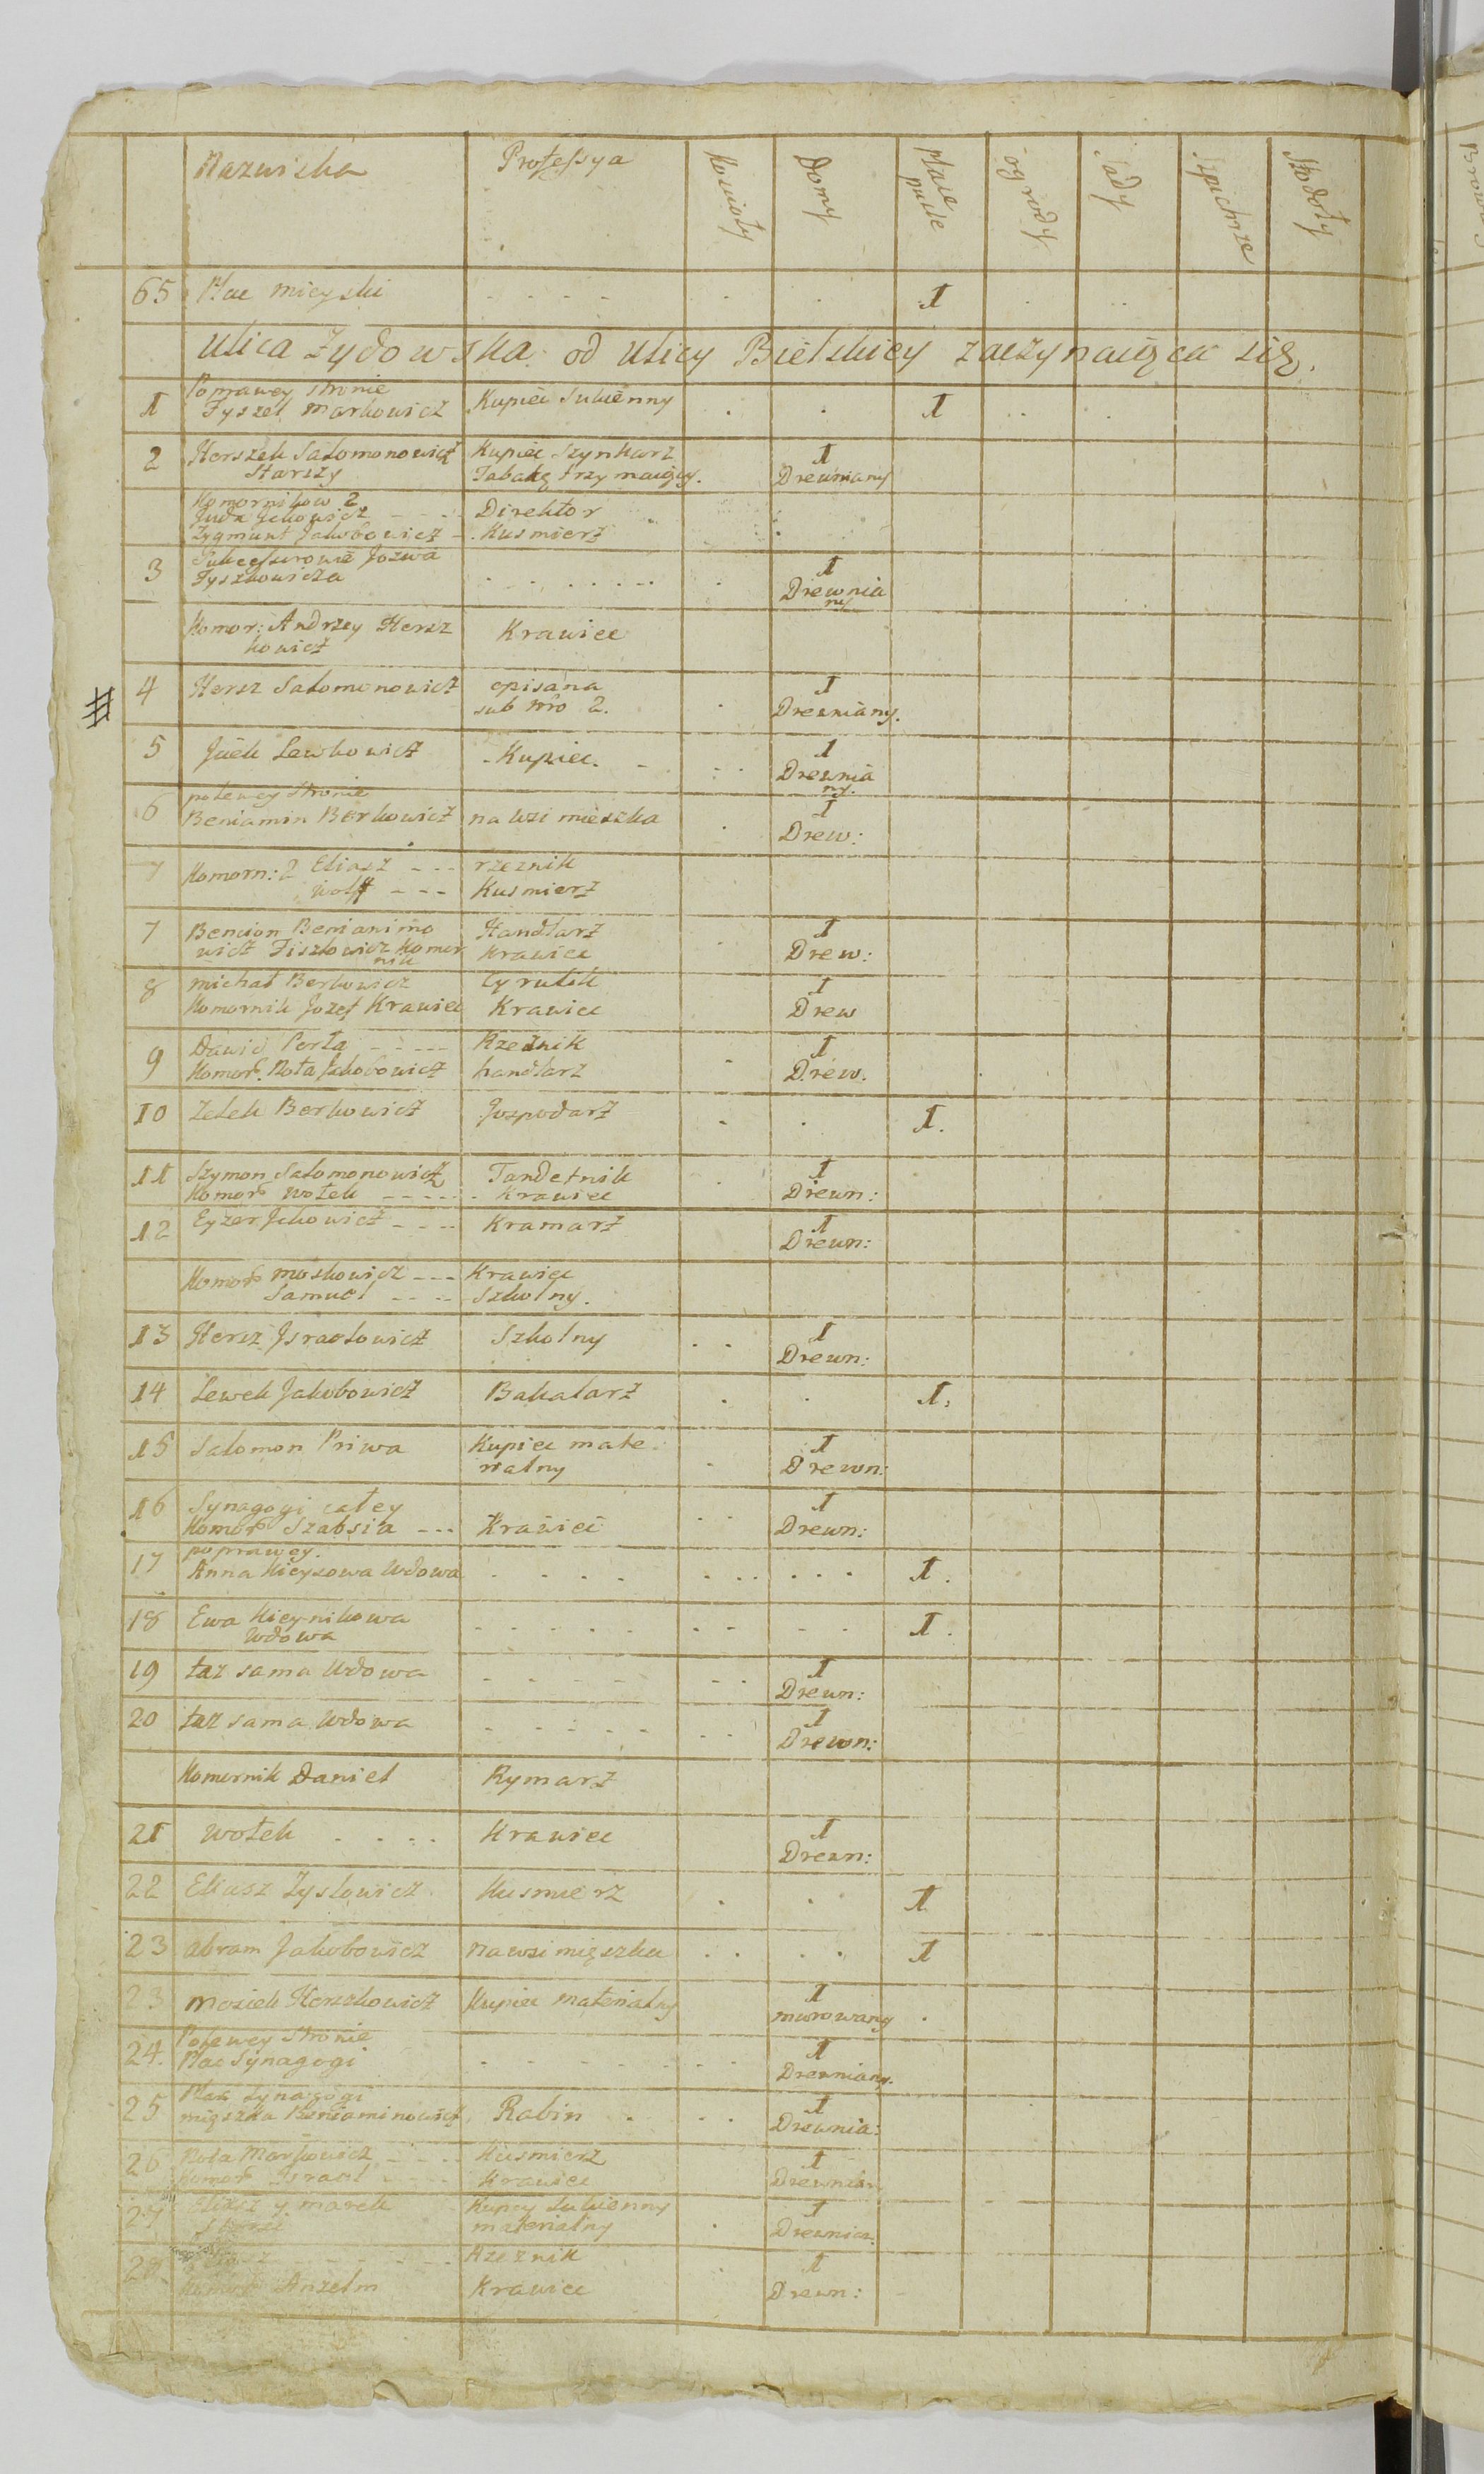 Nazwiska Professya Kościoły Domy place puste ogrody sady Spichrze Stodoły
65 Plac mieyski 1
Ulica Żydowska od Ulicy Bielskiey zaczynaiąca się.
Poprawey stronie
1 Fyszel Markowicz Kupiec Sukienny 1
2 Herszek Salomonowicz Kupiec Szynkarz 1
Starszy Tabakę trzymaiący. Drewniany
Komornikow 2
Juda Jckowicz Direktor
Zygmunt Jakobowicz Kusmierz
3 Sukcessurowie Jozwa 1
Fyszkowicza Drewnia
ny
Komor: Andrzey Hersz Krawiec
kowicz
4 Hersz Salomonowicz opisana 1
sub Nro 2. Drewniany.
5 Juek Lewkowicz Kupiec. 1
Drewnia
ny.
polewey stronie
6 Beniamin Berkowicz na wsi mieszka 1
Drew:
7 Komorn: 2 Eliasz rzeznik
Wolff Kusmierz
7 Bencion Benianimo Handlarz 1
wicz Fiszkowicz Komor Krawiec Drew:
nik
8 michał Berkowicz Cyrulik 1
Komornik Jozef Krawiec Krawiec Drew
9 Dawid Perla Rzeznik 1
Komor. Nota Jakobowicz handlarz Drew.
10 Zelek Berkowicz Gospodarz 1.
11 Szymon Salomonowicz Tandetnik 1
Komor Wołek Krawiec Drewn:
12 Eyzer Jckowicz Kramarz 1
Drewn:
Komor moskowicz Krawiec
Samuel Szkolny.
13 Hersz Jsraelowicz Szkolny 1
Drewn:
14 Lewek Jakobowicz Bakałarz 1.
15 Salomon Priwa Kupiec mate 1
ryalny Drewn:
16 Synagogi całey 1
Komor Szabsia Krawiec Drewn:
poprawey.
17 Anna Kieyzowa Wdowa 1.
18 Ewa Kieynikowa 1.
Wdowa
19 taz sama Wdowa 1
Drewn:
20 taz sama Wdowa 1
Drewn:
Komornik Daniel Rymarz
21 Wołek Krawiec 1
Drewn:
22 Eliasz Zyskowicz Kusmierz 1
23 abram Jakobowicz na wsi mięszka 1
23 Mosiek Herszkowicz Kupiec materialny 1
murowany
Polewey Stronie
24. Plac Synagogi 1
Drewniany.
25 Plac Synagogi 1
mięszka Beniaminowicz Rabin Drewnia:
26 Nota Markowicz Kusmierz 1
Komor Jsrael Krawiec Drewnia
27 Eliasz y marek Kupcy Sukienny 1
materialny Drewnia
28 Rzeznik 1
Komor Anzelm Krawiec Drewn: